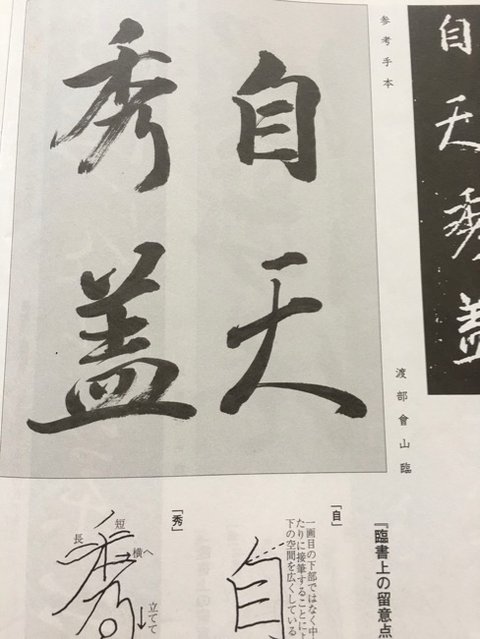 自天秀盖
参考手本
自天
秀盖
渡部會山臨
『臨書上の留意点
「自」
一画目の下部ではなく中
たりに接筆することによ
下の空間を広くしている
「秀」
短
長
横へ
立てて